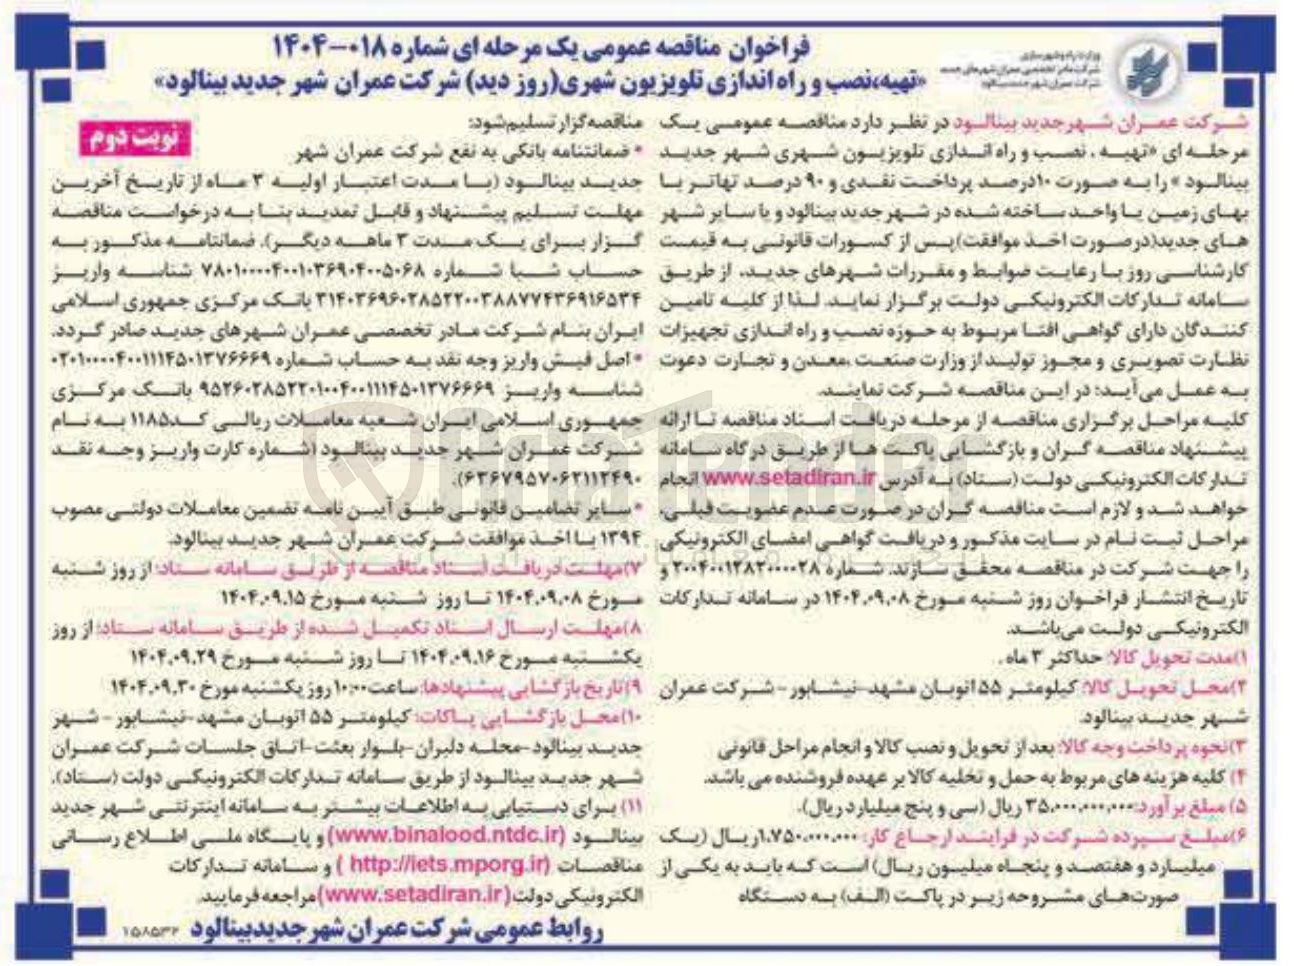 فراخوان مناقصه عمومی یک مرحله ای شماره ۰۱۸-۱۴۰۴
«تهیه،نصب و راه اندازی تلویزیون شهری(روز دید) شرکت عمران شهر جدید بینالود»
وزارت راه و شهرسازی
شرکت مادر تخصصی عمران شهرهای جدید
شرکت عمران شهر جدید بینالود
نوبت دوم
شرکت عمران شهرجدید بینالود در نظر دارد مناقصه عمومی یک
مرحله ای «تهیه ، نصب و راه اندازی تلویزیون شهری شهر جدید
بینالود » را به صورت ۱۰درصد پرداخت نقدی و ۹۰ درصد تهاتر با
بهای زمین یا واحد ساخته شده در شهر جدید بینالود و یا سایر شهر
های جدید(درصورت اخذ موافقت)پس از کسورات قانونی به قیمت
کارشناسی روز با رعایت ضوابط و مقررات شهرهای جدید، از طریق
سامانه تدارکات الکترونیکی دولت برگزار نماید. لذا از کلیه تامین
کنندگان دارای گواهی افتا مربوط به حوزه نصب و راه اندازی تجهیزات
نظارت تصویری و مجوز تولید از وزارت صنعت ،معدن و تجارت دعوت
به عمل می‌آید؛ در این مناقصه شرکت نمایند.
کلیه مراحل برگزاری مناقصه از مرحله دریافت اسناد مناقصه تا ارائه
پیشنهاد مناقصه گران و بازگشایی پاکت ها از طریق درگاه سامانه
تدارکات الکترونیکی دولت (ستاد) به آدرس www.setadiran.ir انجام
خواهد شد و لازم است مناقصه گران در صورت عدم عضویت قبلی،
مراحل ثبت نام در سایت مذکور و دریافت گواهی امضای الکترونیکی
را جهت شرکت در مناقصه محقق سازند. شماره ۲۰۰۴۰۰۱۲۸۲۰۰۰۰۲۸ و
تاریخ انتشار فراخوان روز شنبه مورخ ۱۴۰۴.۰۹.۰۸ در سامانه تدارکات
الکترونیکی دولت می‌باشد.
۱)مدت تحویل کالا: حداکثر ۳ ماه .
۲)محل تحویل کالا: کیلومتر ۵۵ اتوبان مشهد-نیشابور - شرکت عمران
شهر جدید بینالود.
۳)نحوه پرداخت وجه کالا: بعد از تحویل و نصب کالا و انجام مراحل قانونی
۴) کلیه هزینه های مربوط به حمل و تخلیه کالا بر عهده فروشنده می باشد.
۵) مبلغ برآورد: ۳۵،۰۰۰،۰۰۰،۰۰۰ ریال (سی و پنج میلیارد ریال).
۶)مبلغ سپرده شرکت در فرایند ارجاع کار: ۱،۷۵۰،۰۰۰،۰۰۰ریال (یک
میلیارد و هفتصد و پنجاه میلیون ریال) است که باید به یکی از
صورت‌های مشروحه زیر در پاکت (الف) به دستگاه
مناقصه‌گزار تسلیم‌شود:
* ضمانتنامه بانکی به نفع شرکت عمران شهر
جدید بینالود (با مدت اعتبار اولیه ۳ ماه از تاریخ آخرین
مهلت تسلیم پیشنهاد و قابل تمدید بنا به درخواست مناقصه
گزار برای یک مدت ۳ ماهه دیگر). ضمانتامه مذکور به
حساب شبا شماره ۷۸۰۱۰۰۰۰۴۰۰۱۰۳۶۹۰۴۰۰۵۰۶۸ شناسه واریز
۳۱۴۰۳۶۹۶۰۲۸۵۲۲۰۰۳۸۸۷۷۴۳۶۹۱۶۵۳۴ بانک مرکزی جمهوری اسلامی
ایران بنام شرکت مادر تخصصی عمران شهرهای جدید صادر گردد.
* اصل فیش واریز وجه نقد به حساب شماره ۰۲۰۱۰۰۰۰۴۰۰۱۱۱۴۵۰۱۳۷۶۶۶۹
شناسه واریز ۹۵۲۶۰۲۸۵۲۲۰۱۰۰۴۰۰۱۱۱۴۵۰۱۳۷۶۶۶۹ بانک مرکزی
جمهوری اسلامی ایران شعبه معاملات ریالی کد۱۱۸۵ به نام
شرکت عمران شهر جدید بینالود (شماره کارت واریز وجه نقد
۶۳۶۷۹۵۷۰۶۲۱۱۲۴۹۰).
*سایر تضامین قانونی طبق آیین نامه تضمین معاملات دولتی مصوب
۱۳۹۴ با اخذ موافقت شرکت عمران شهر جدید بینالود.
۷)مهلت دریافت اسناد مناقصه از طریق سامانه ستاد: از روز شنبه
مورخ ۱۴۰۴.۰۹.۰۸ تا روز شنبه مورخ ۱۴۰۴.۰۹.۱۵
۸)مهلت ارسال اسناد تکمیل شده از طریق سامانه ستاد: از روز
یکشنبه مورخ ۱۴۰۴.۰۹.۱۶ تا روز شنبه مورخ ۱۴۰۴.۰۹.۲۹
۹)تاریخ بازگشایی پیشنهادها: ساعت ۱۰:۰۰ روز یکشنبه مورخ ۱۴۰۴.۰۹.۳۰
۱۰)محل بازگشایی پاکات: کیلومتر ۵۵ اتوبان مشهد-نیشابور - شهر
جدید بینالود-محله دلیران-بلوار بعثت-اتاق جلسات شرکت عمران
شهر جدید بینالود از طریق سامانه تدارکات الکترونیکی دولت (ستاد).
۱۱) برای دستیابی به اطلاعات بیشتر به سامانه اینترنتی شهر جدید
بینالود (www.binalood.ntdc.ir) و پایگاه ملی اطلاع رسانی
مناقصات (http://iets.mporg.ir ) و سامانه تدارکات
الکترونیکی دولت(www.setadiran.ir)مراجعه فرمایید.
روابط عمومی شرکت عمران شهر جدید بینالود
۱۵۸۵۳۲
AriaTender